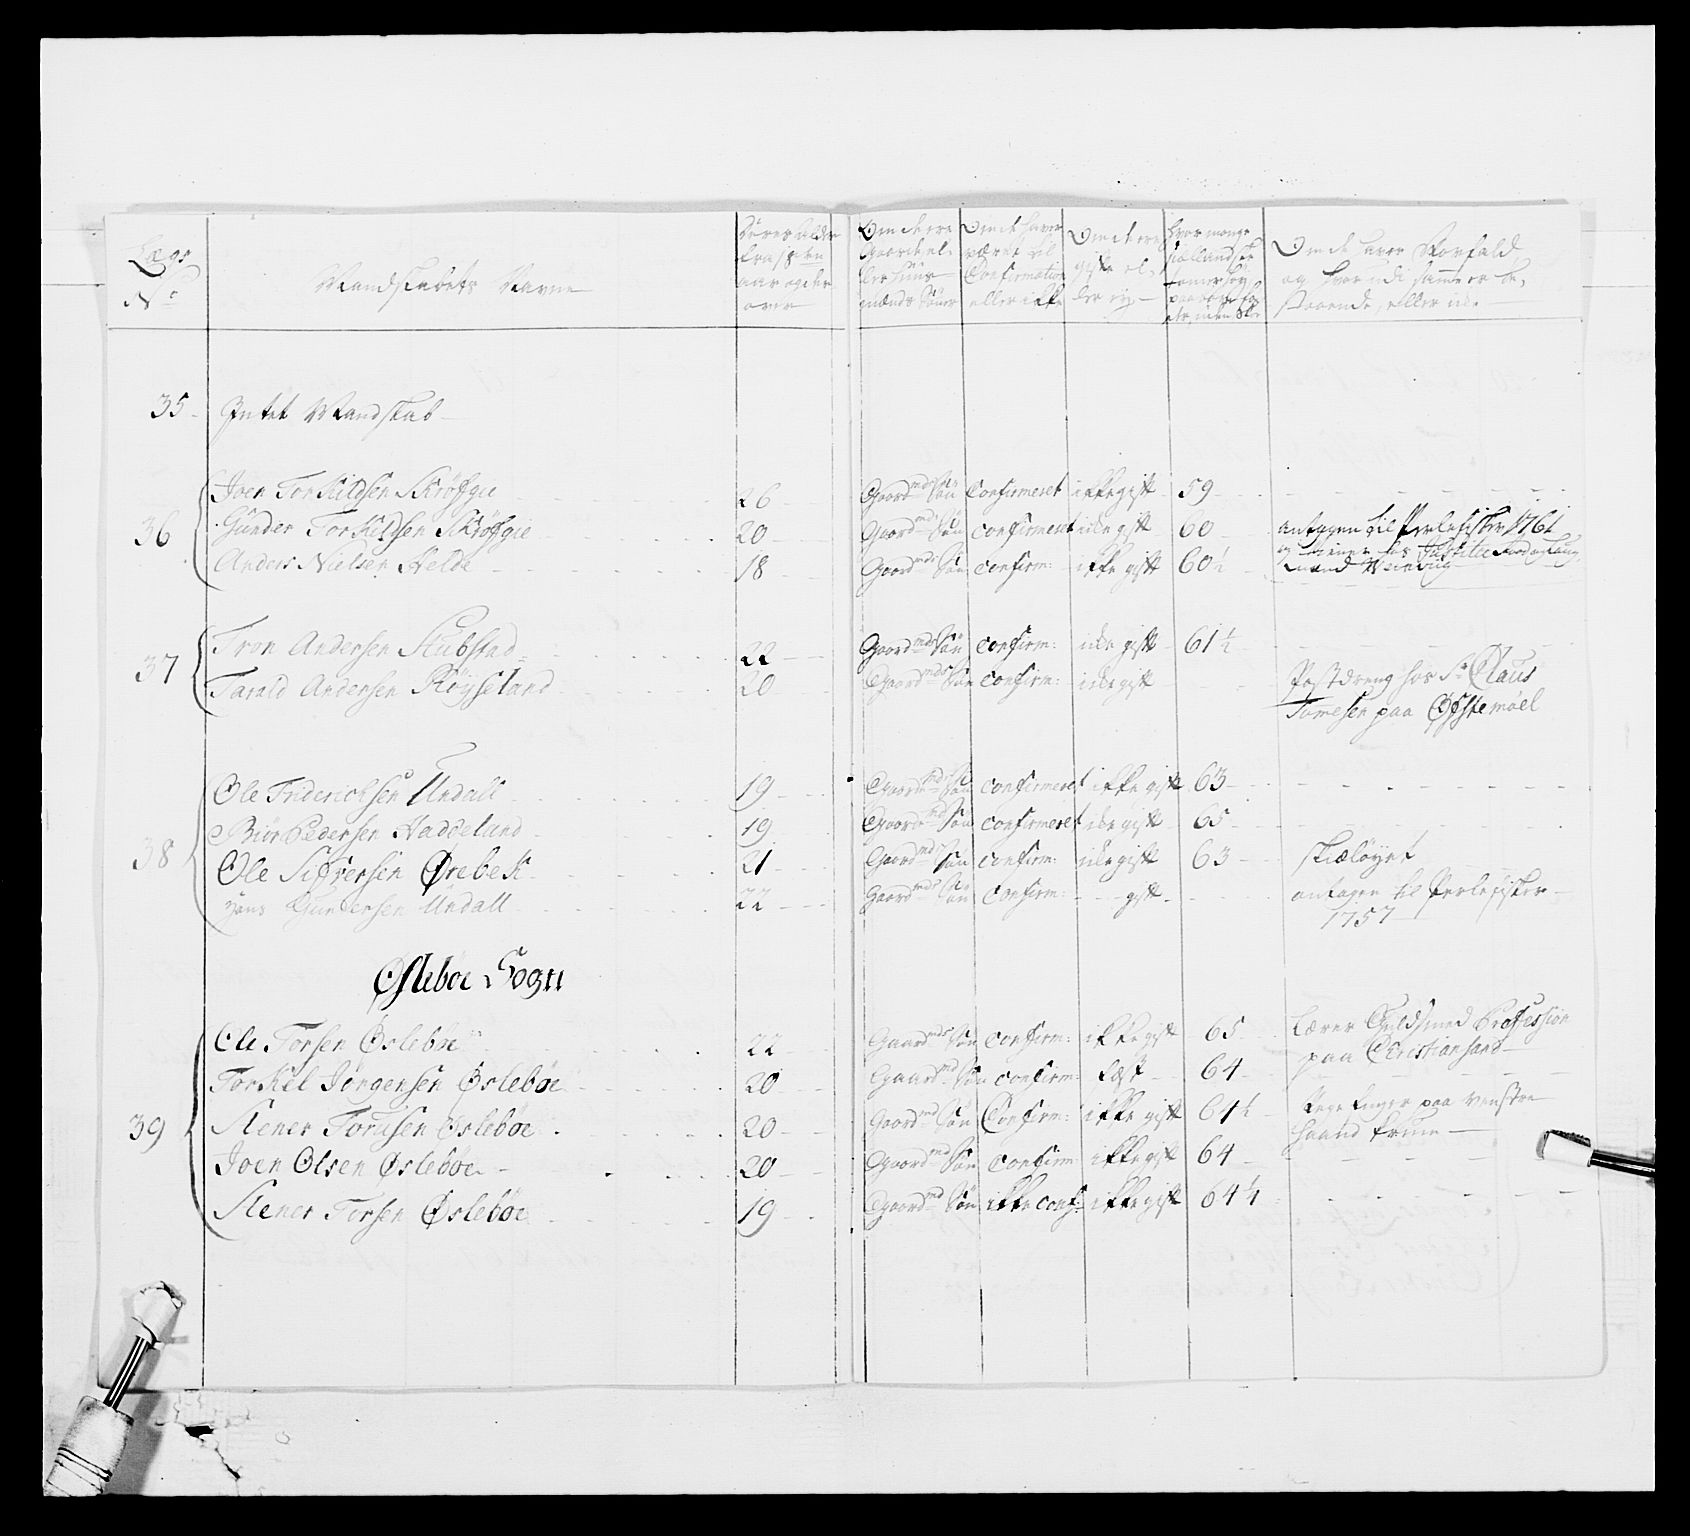 Lægs
No
Mandskabets Navne
Deres alder
fra 18ten
aar og der
over
Om de ere
Gaard el-
ler huus-
mænds Sønner
Om de haver
været til
Confirmation
eller ikke
Om de ere
gifte el-
ler ey
Hvor mange
siællandske
tommer høy
Om de have Norfald
og hvor udi samme er be-
staaende, eller ikke
35 Intet Mandskab
36
Joen Torkildsen Skrøfgie 26 Gaardmds Søn Confirmeret ikke gift 59
Gunder Torkildsen Skrøfgie 20 Gaardmds Søn confirmeret ikke gift 60 antagen til Perlefisker 1761
Anders Nielsen Helde 18 Gaardmds Søn confirm: ikke gift 60½
37
Tron Andersen Stubstad 22 Gaardmds Søn confirm: ikke gift 61½
Tarald Andersen Røyseland 20 Gaardmds Søn confirm: ikke gift Postdreng hos Sr Claus
Tomesen paa Øfstemøel
38
Ole Fridericksen Undall 19 Gaardmds Søn confirmeret ikke gift 63
Biør Pedersen Haddeland 19 Gaardmds Søn confirmeret ikke gift 65
Ole Sifversen Ørebek 21 Gaardmds Søn confirm: ikke gift 63 skieløyet
Hans Gundersen Undall 22 Gaardmds Søn confirm: gift antagen til Perlefisker
1757
Øslebøe Sogn
39
Ole Torsen Øslebøe 22 Gaardmds Søn confirm: ikke gift 65 lærer Guldsmed Profession
paa Christiansand
Torkel Jørgensen Øslebøe 20 Gaardmds Søn confirm: fæst 64
Stener Torusen Øslebøe 20 Gaardmds Søn Confirm: ikke gift 64½ finger paa venstre
haand krum
Joen Olsen Øslebøe 20 Gaardmds Søn confirm: ikke gift 64
Stener Torsen Øslebøe 19 Gaardmds Søn ikke conf: ikke gift 64¼